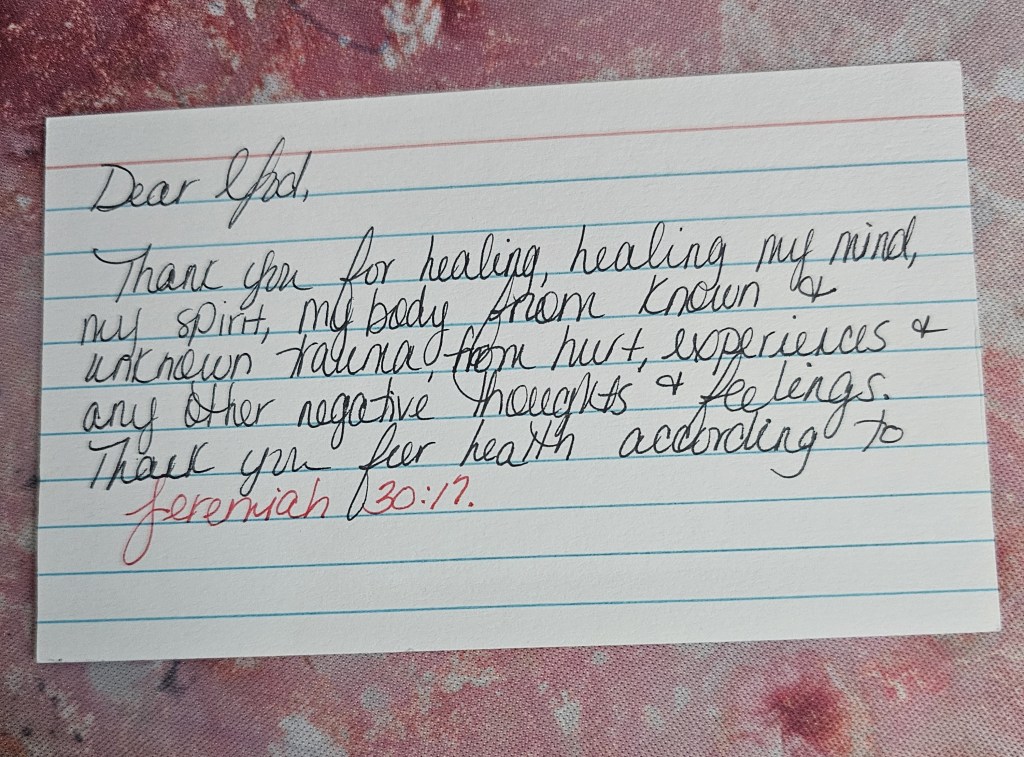 Dear God,
Thank you for healing, healing my mind,
my spirit, my body from known &
unknown trauma, from hurt, experiences &
any other negative thoughts & feelings.
Thank you for health according to
Jeremiah 30:17.